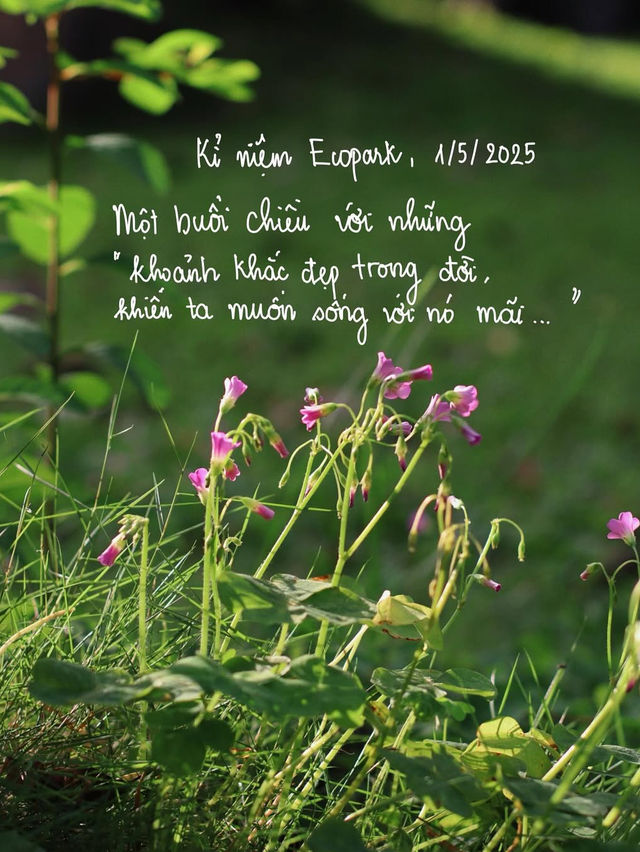 Kỉ niệm Ecopark, 1/5/2025
Một buổi chiều với những
"khoảnh khắc đẹp trong đời,
khiến ta muốn sống với nó mãi..."